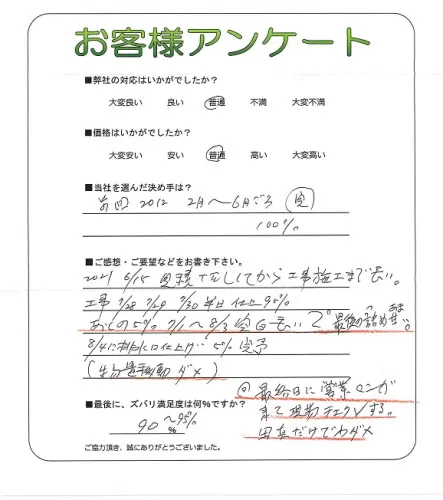 お客様アンケート
■弊社の対応はいかがでしたか?
大変良い 良い 普通 不満 大変不満
■価格はいかがでしたか?
大変安い 安い 普通 高い 大変高い
■当社を選んだ決め手は?
前回 2012 2月〜6月ごろ
100%
■ご感想・ご要望などをお書き下さい。
2021 6/15 見積 してから工事施工まで長い。
工事 7/28 7/29 7/30 半日 仕上95%
あとの5% 8/3 空白長い 最後の詰めあまい。
8/4に排水口仕上げ 5% 完了
ダメ)
回 最終日に営業マンが
来て現場チェックする。
写真だけでわダメ
■最後に、ズバリ満足度は何%ですか?
90〜95%
%
ご協力頂き、誠にありがとうございました。